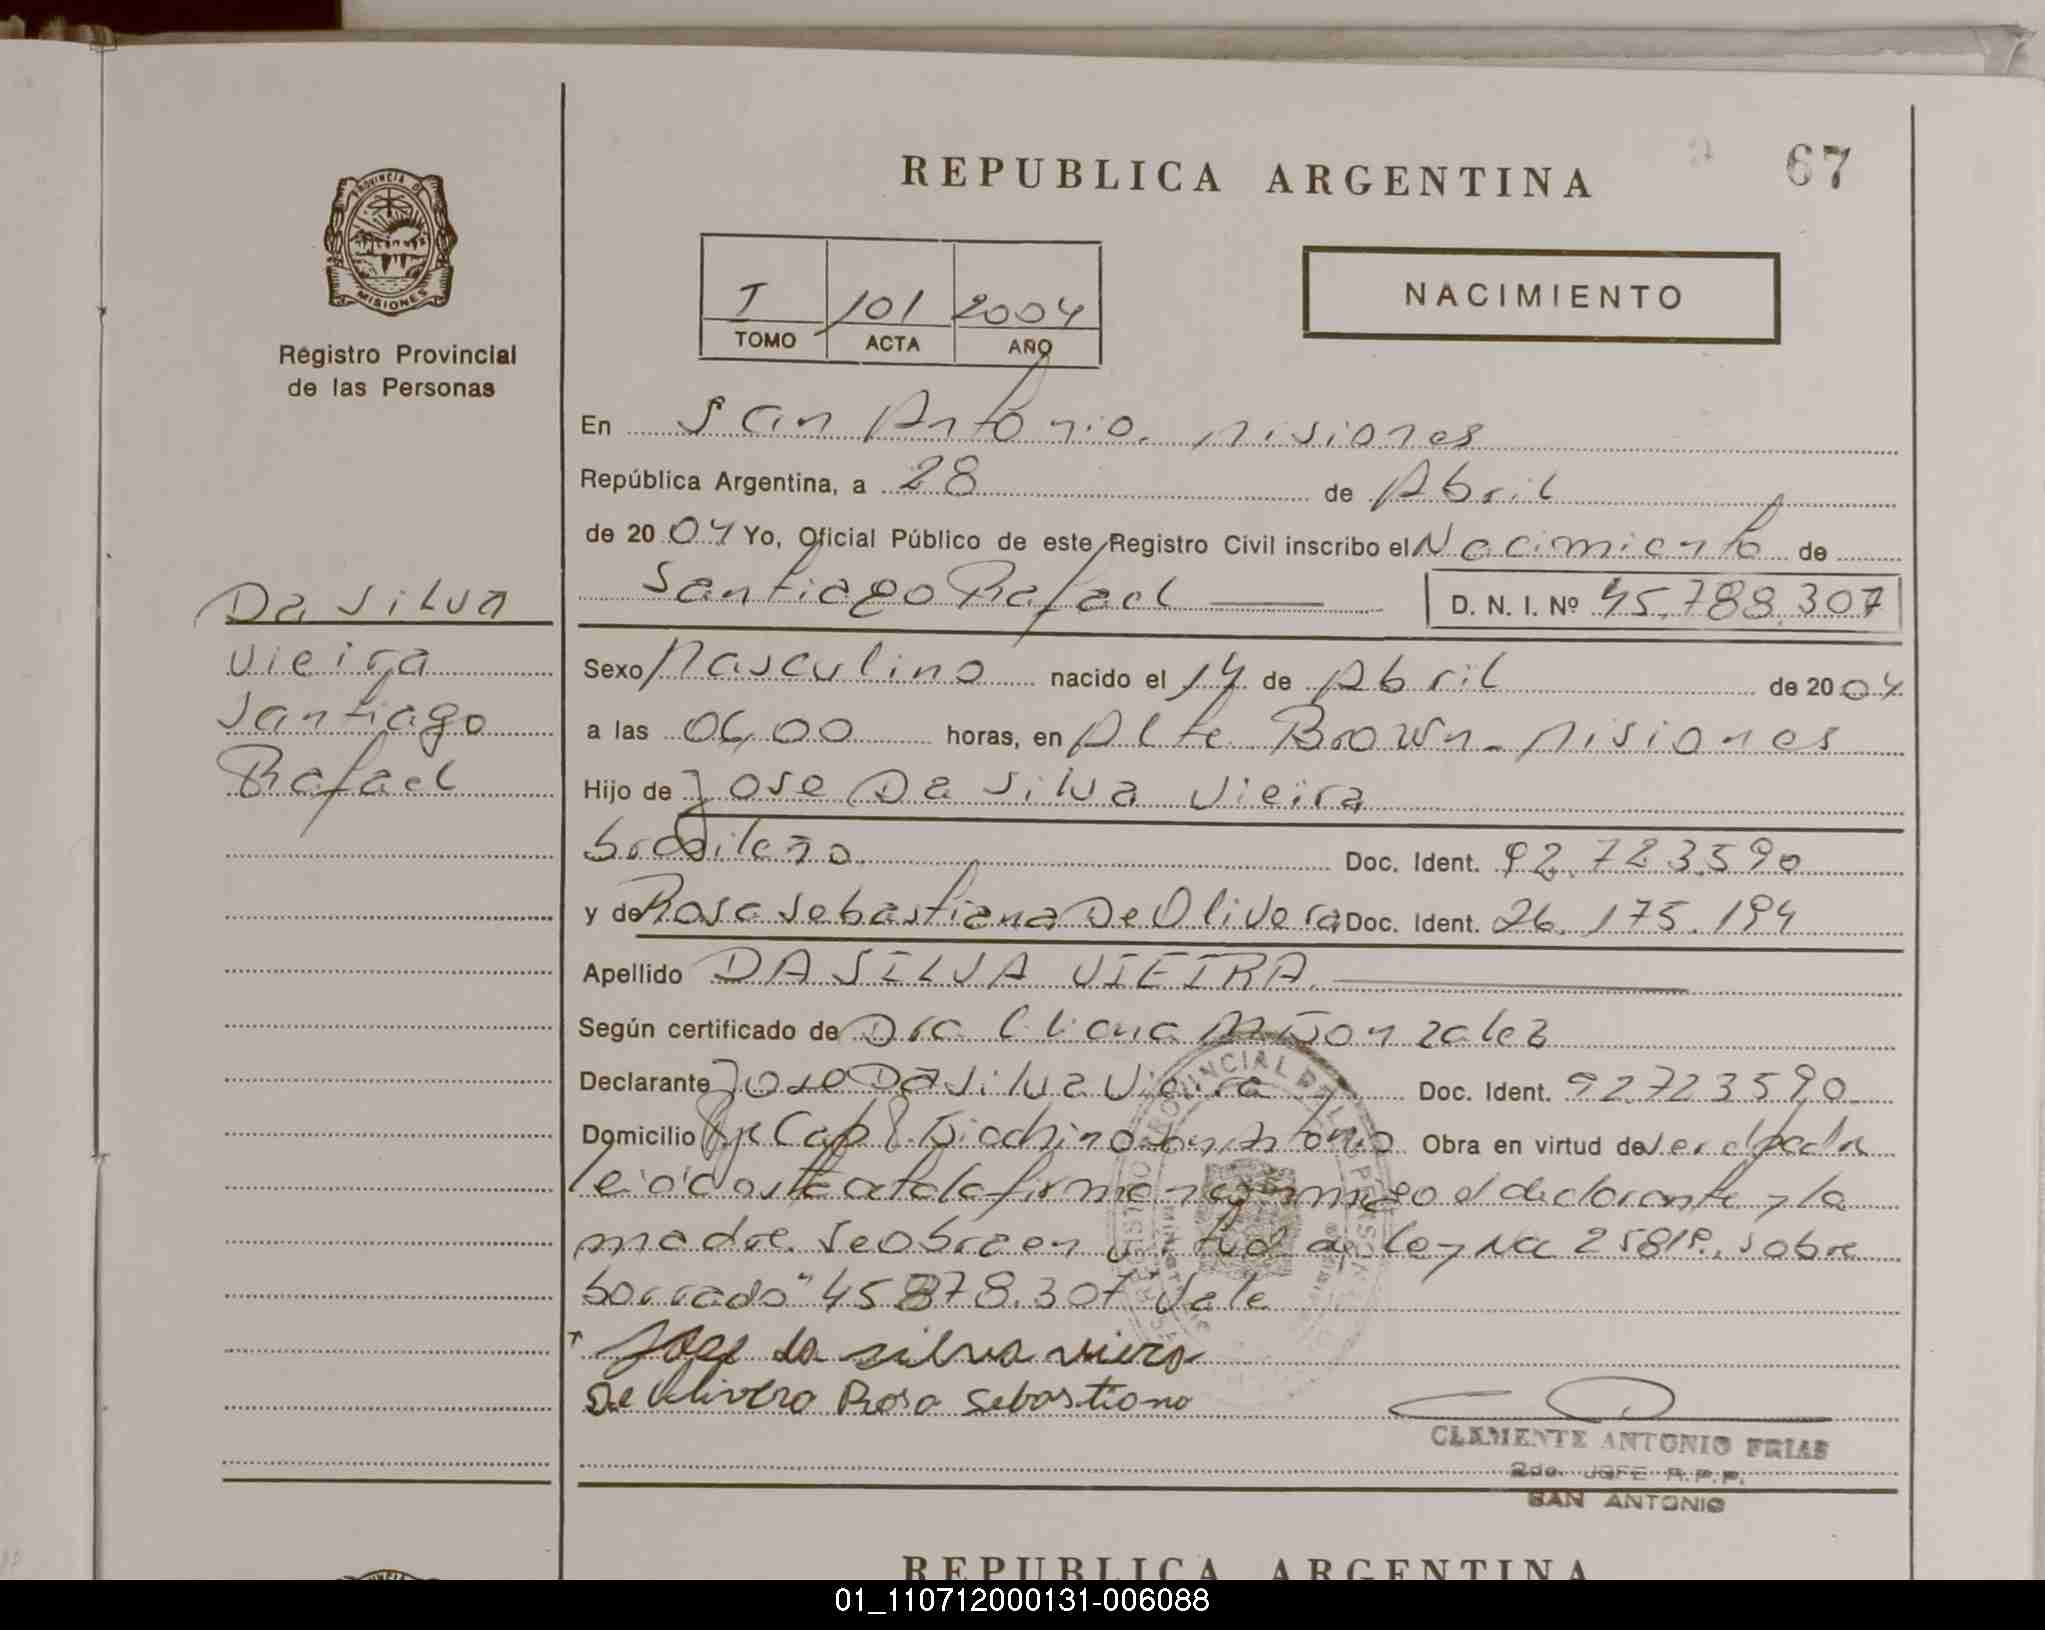 REPUBLICA ARGENTINA
67
PROVINCIA DE
MISIONES
Registro Provincial
de las Personas
T 101 2004
TOMO ACTA AÑO
NACIMIENTO
En San Antonio. Misiones
República Argentina, a 28 de Abril
de 2004 Yo, Oficial Público de este Registro Civil inscribo el Nacimiento de
Santiago Rafael
D. N. I. Nº 45.788.307
Da Silva
Vieira
Santiago
Rafael
Sexo Masculino nacido el 14 de Abril de 2004
a las 06,00 horas, en Alte Brown - Misiones
Hijo de Jose Da Silva Vieira
brasileño Doc. Ident. 92.723.590
y de Rosa Sebastiana De Olivera Doc. Ident. 26.175.194
Apellido DA SILVA VIEIRA.
Según certificado de Dra Liliana M Gonzalez
Declarante Jose Da Silva Vieira Doc. Ident. 92.723590
Domicilio Pje Cabo San Antonio Obra en virtud de ser el padre
leida esta acta la firman conmigo el declarante y la
madre. Se obra en virtud de ley 25819. Sobre
borrado "45.878.307" Vale
Jose da silva viera
De Olivera Rosa Sebastiana
CLEMENTE ANTONIO FRIAS
2do. JEFE R.P.P.
SAN ANTONIO
REPUBLICA ARGENTINA
01_110712000131-006088